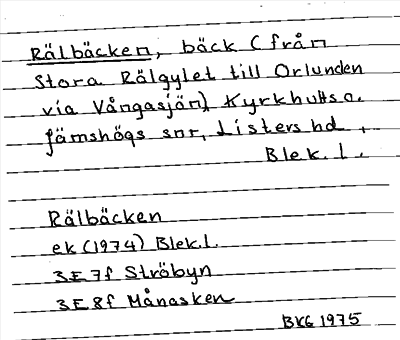 Rälbäcken, bäck (från
Stora Rälgylet till Orlunden
via Vångasjön) Kyrkhults o.
Jämshögs snr, Listers hd,
Blek. l.
Rälbäcken
ek (1974) Blek.l.
3E 7f Ströbyn
3E 8f Månasken
BKG 1975